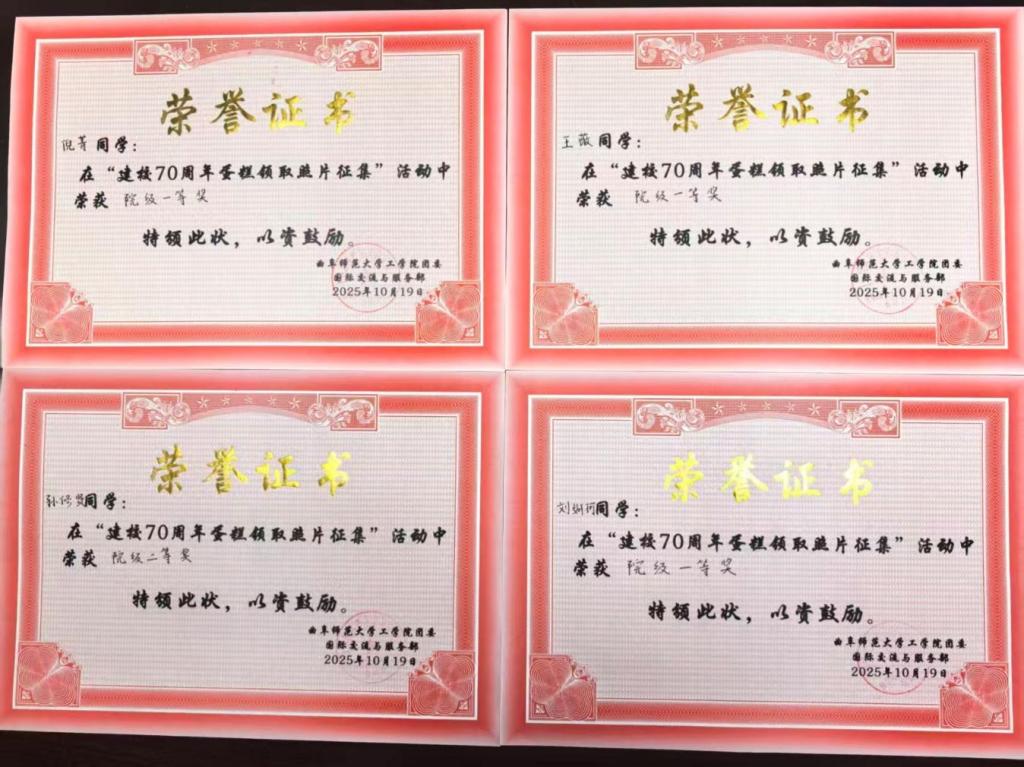 荣誉证书
倪菁同学：
在“建校70周年蛋糕领取照片征集”活动中
荣获 院级一等奖
特颁此状，以资鼓励。
曲阜师范大学工学院团委
国际交流与服务部
2025年10月19日
荣誉证书
王薇同学：
在“建校70周年蛋糕领取照片征集”活动中
荣获 院级一等奖
特颁此状，以资鼓励。
曲阜师范大学工学院团委
国际交流与服务部
2025年10月19日
荣誉证书
孙修贤同学：
在“建校70周年蛋糕领取照片征集”活动中
荣获 院级二等奖
特颁此状，以资鼓励。
曲阜师范大学工学院团委
国际交流与服务部
2025年10月19日
荣誉证书
刘 同学：
在“建校70周年蛋糕领取照片征集”活动中
荣获 院级一等奖
特颁此状，以资鼓励。
曲阜师范大学工学院团委
国际交流与服务部
2025年10月19日